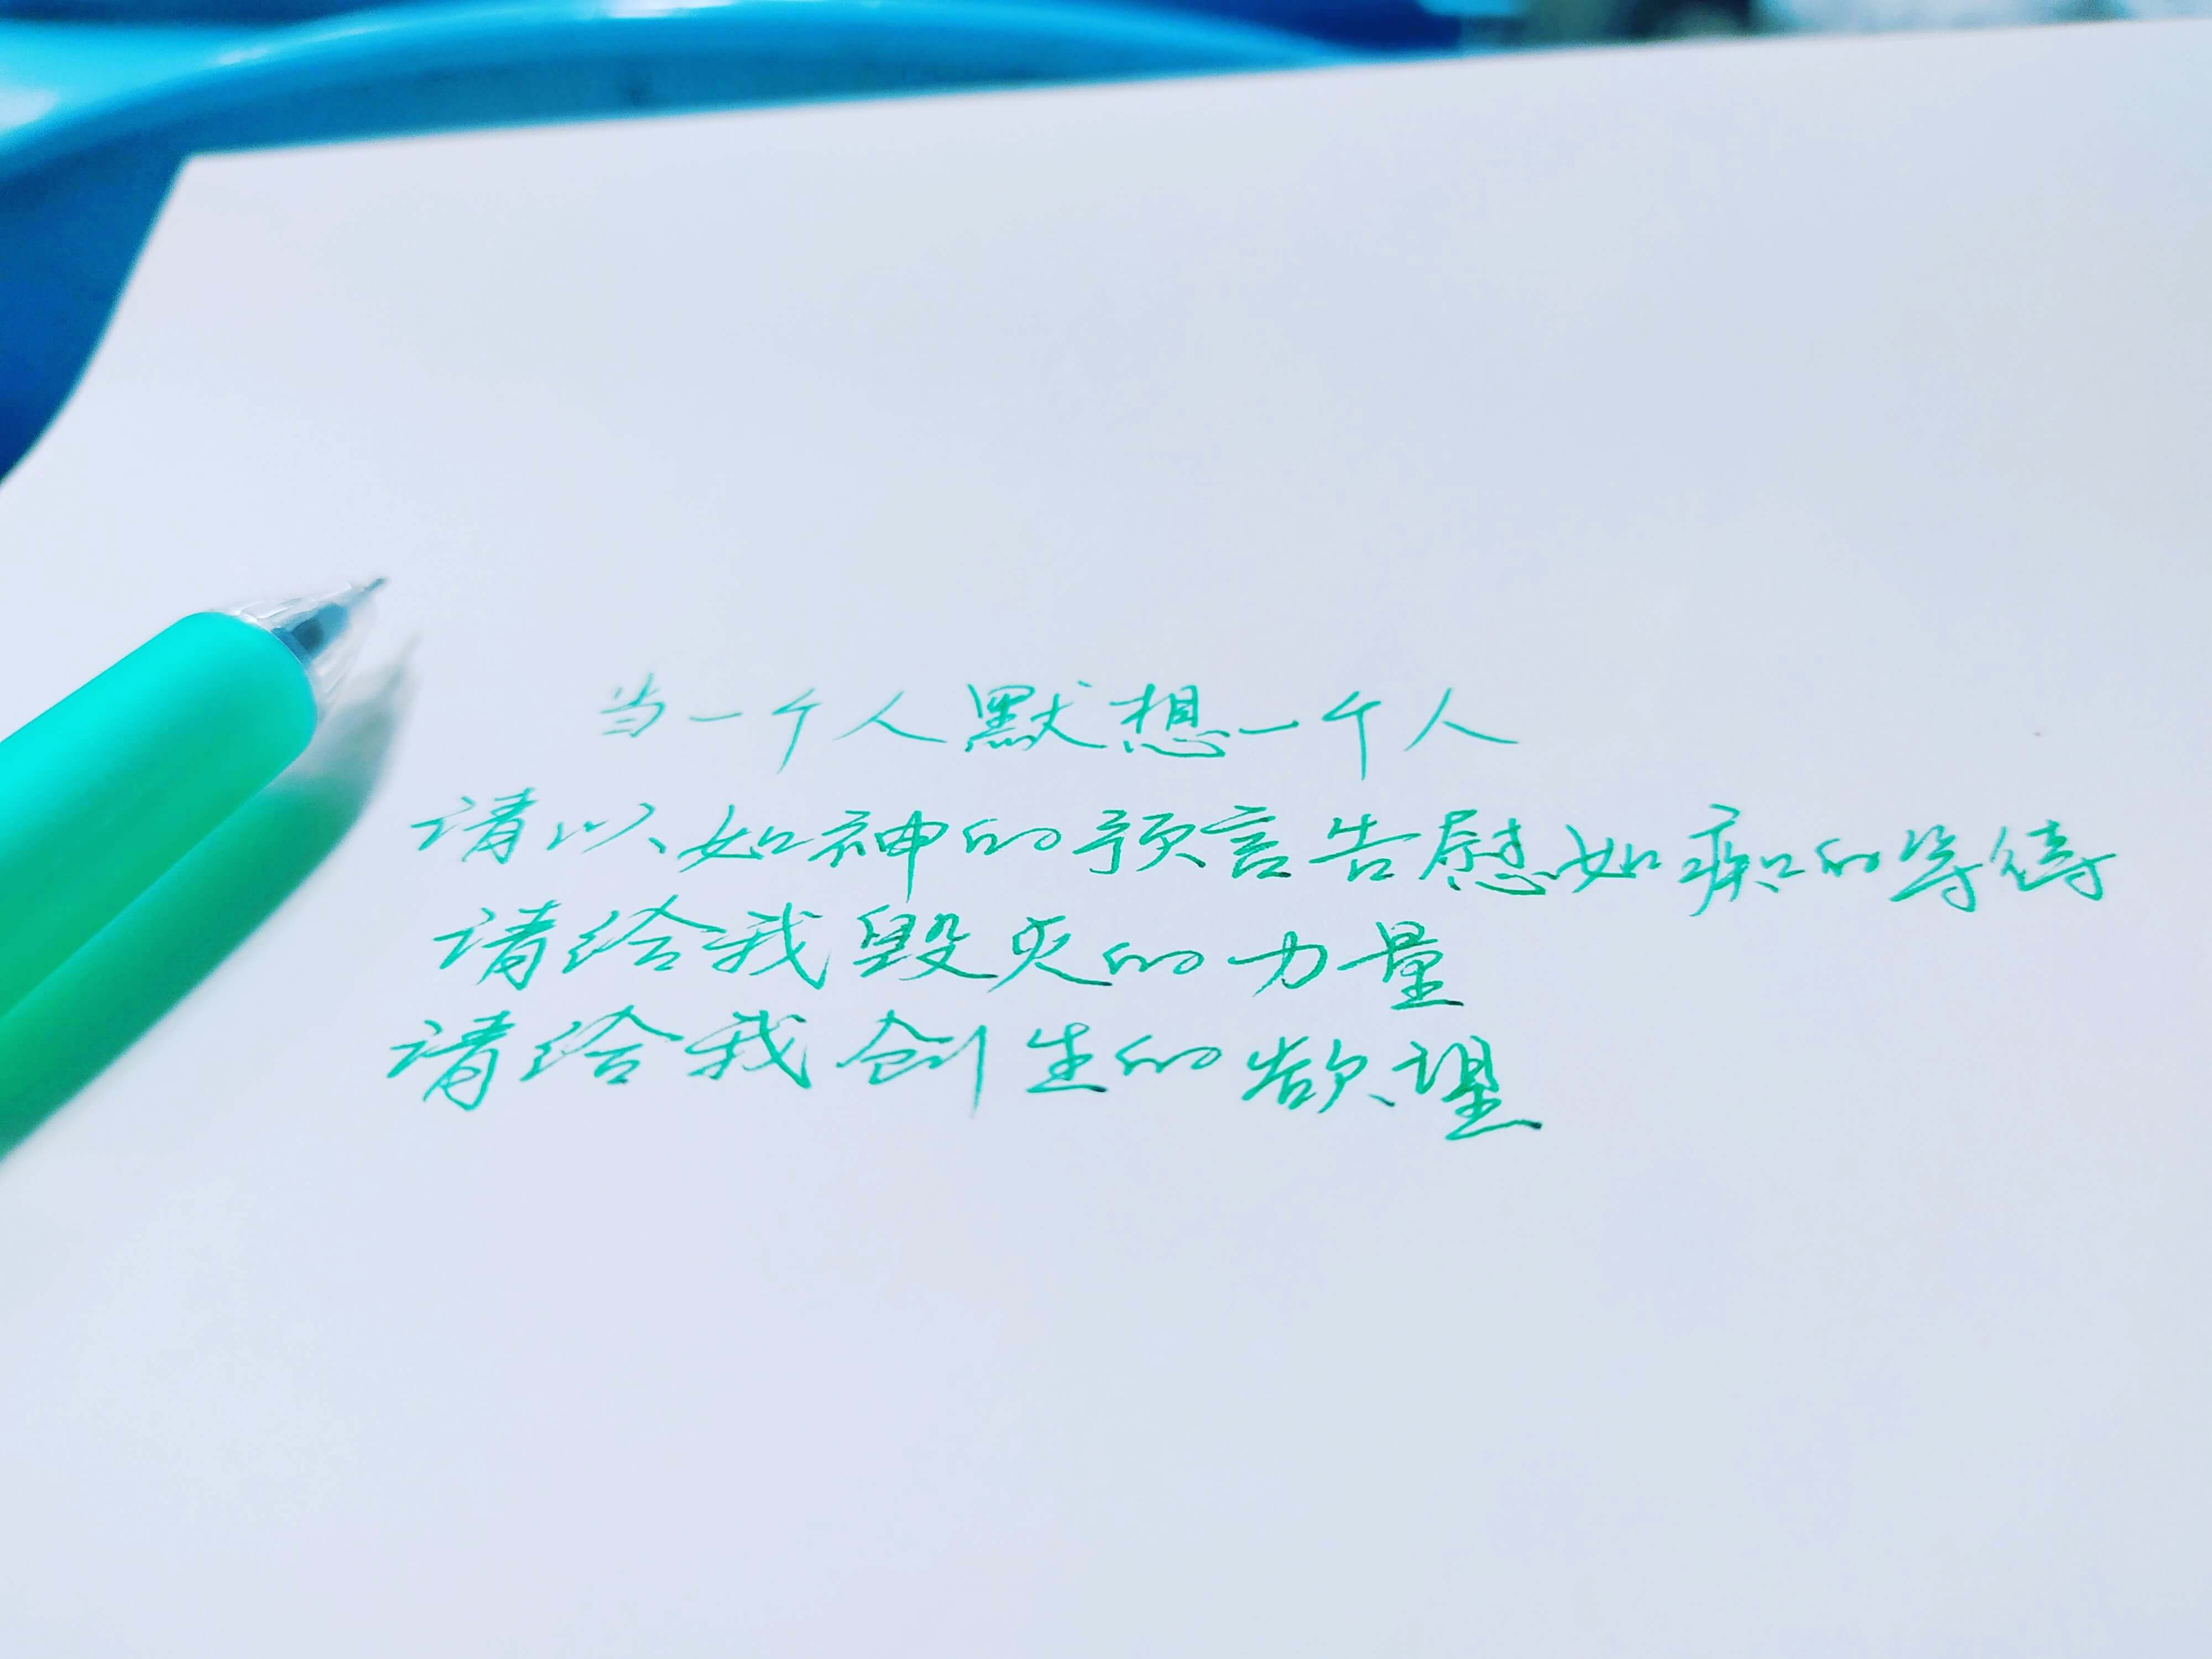 当一个人默想一个人
请以如神的预言告慰如痴的等待
请给我毁灭的力量
请给我创生的欲望